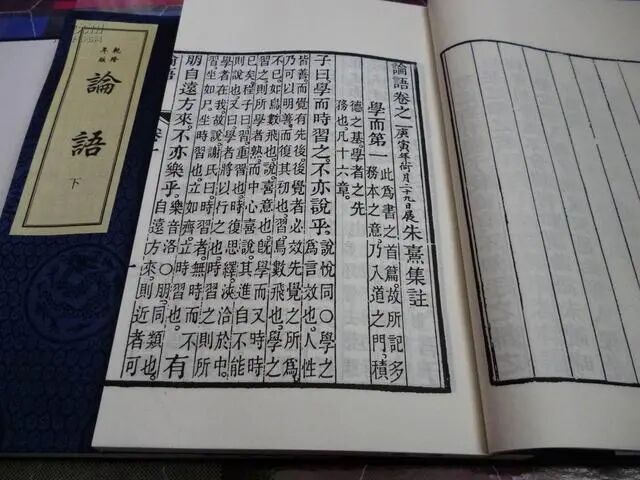 乾隆
年版
論語
下
論語卷之一 庚寅年荷月二十九日展 朱熹集註
學而第一 此為書之首篇。故所記多
務本之意乃入道之門。積
德之基學者之先
務也凡十六章。
子曰。學而時習之。不亦說乎。說悅同〇學之
為言效也。人性
皆善。而覺有先後。後覺者必效先覺之所爲。
乃可以明善而復其初也。習。鳥數飛也。學之
不已。如鳥數飛也。說。喜意也。旣學而又時時
習之。則所學者熟。而中心喜說。其進自不能
已矣。程子曰。習。重習也。時復思繹。浹洽於中。
則說也。又曰。學者將以行之也。時習之。則所
學者在我。故說。謝氏曰。時習者。無時而不
習。坐如尸。坐時習也。立如齊。立時習也。有
朋自遠方來。不亦樂乎。樂音洛〇朋。同類也。
自遠方來。則近者可